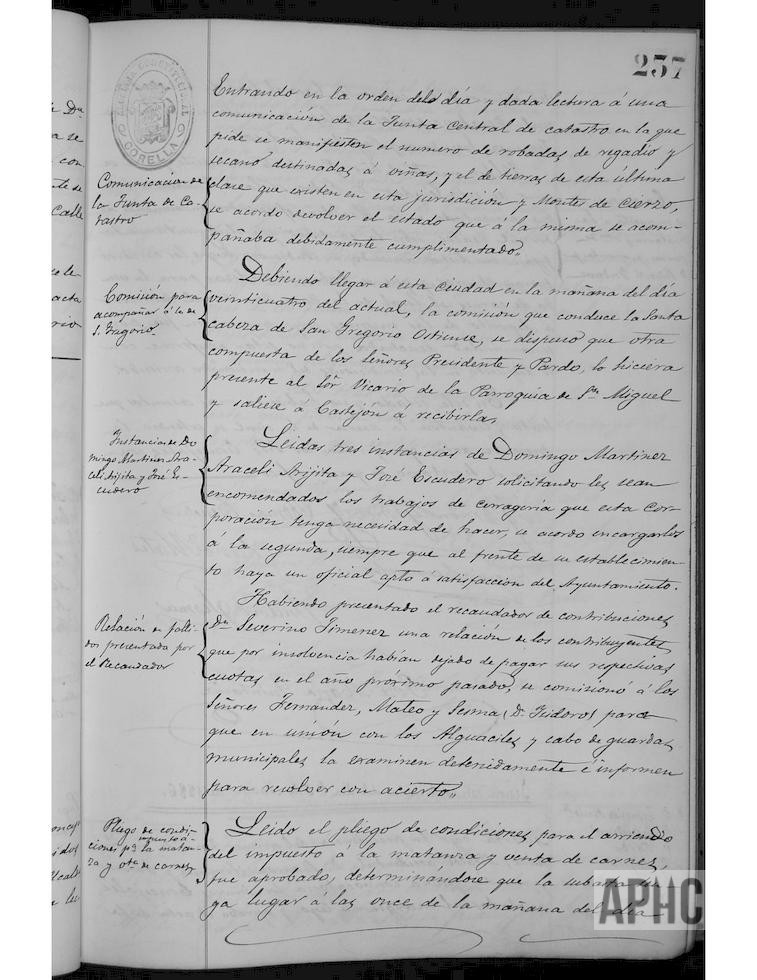 257
Entrando en la orden del día y dada lectura á una
comunicación de la Junta Central de catastro en la que
pide se manifiesten el numero de robadas de regadio y
secano destinadas á viñas, y el de tierras de esta última
clase que existen en esta jurisdicción y Montes de Cierzo,
se acordo devolver el estado que á la misma se acom-
pañaba debidamente cumplimentado.
Comunicacion de
la Junta de Ca-
tastro
Debiendo llegar á esta Ciudad en la mañana del día
veinticuatro del actual, la comisión que conduce la Santa
Cabeza de San Gregorio Ostiense, se dispuso que otra
compuesta de los Señores Presidente y Pardo, lo hiciera
presente al Sor Vicario de la Parroquia de Sn Miguel
y saliese á Castejón á recibirla,
Comisión para
acompañar á la de
S. Gregorio
Leidas tres instancias de Domingo Martinez
Araceli Arijita y José Escudero solicitando les sean
encomendados los trabajos de cerrageria que esta Cor-
poración tenga necesidad de hacer, se acordo encargarlos
á la segunda, siempre que al frente de su establecimien-
to haya un oficial apto á satisfaccion del Ayuntamiento.
Instancias de Do
mingo Martinez Ara-
celi Arijita y José Es-
cudero
Habiendo presentado el recaudador de contribuciones
Dn Severino Jimenez una relación de los contribuyentes
que por insolvencia habían dejado de pagar sus respectivas
cuotas en el año próximo pasado, se comisionó á los
Señores Fernandez, Mateo y Sesma (D. Isidoro) para
que en unión con los Alguaciles y cabo de guardas
municipales la examinen detenidamente é informen
para resolver con acierto"
Relación de falli-
dos presentada por
el Recaudador
Leido el pliego de condiciones para el arriendo
del impuesto á la matanza y venta de carnes,
fue aprobado, determinándose que la subasta ten-
ga lugar á las once de la mañana del día
Pliego de condi-
impuesto á
ciones pa la matan-
za y vta de carnes
CORELLA
APHC